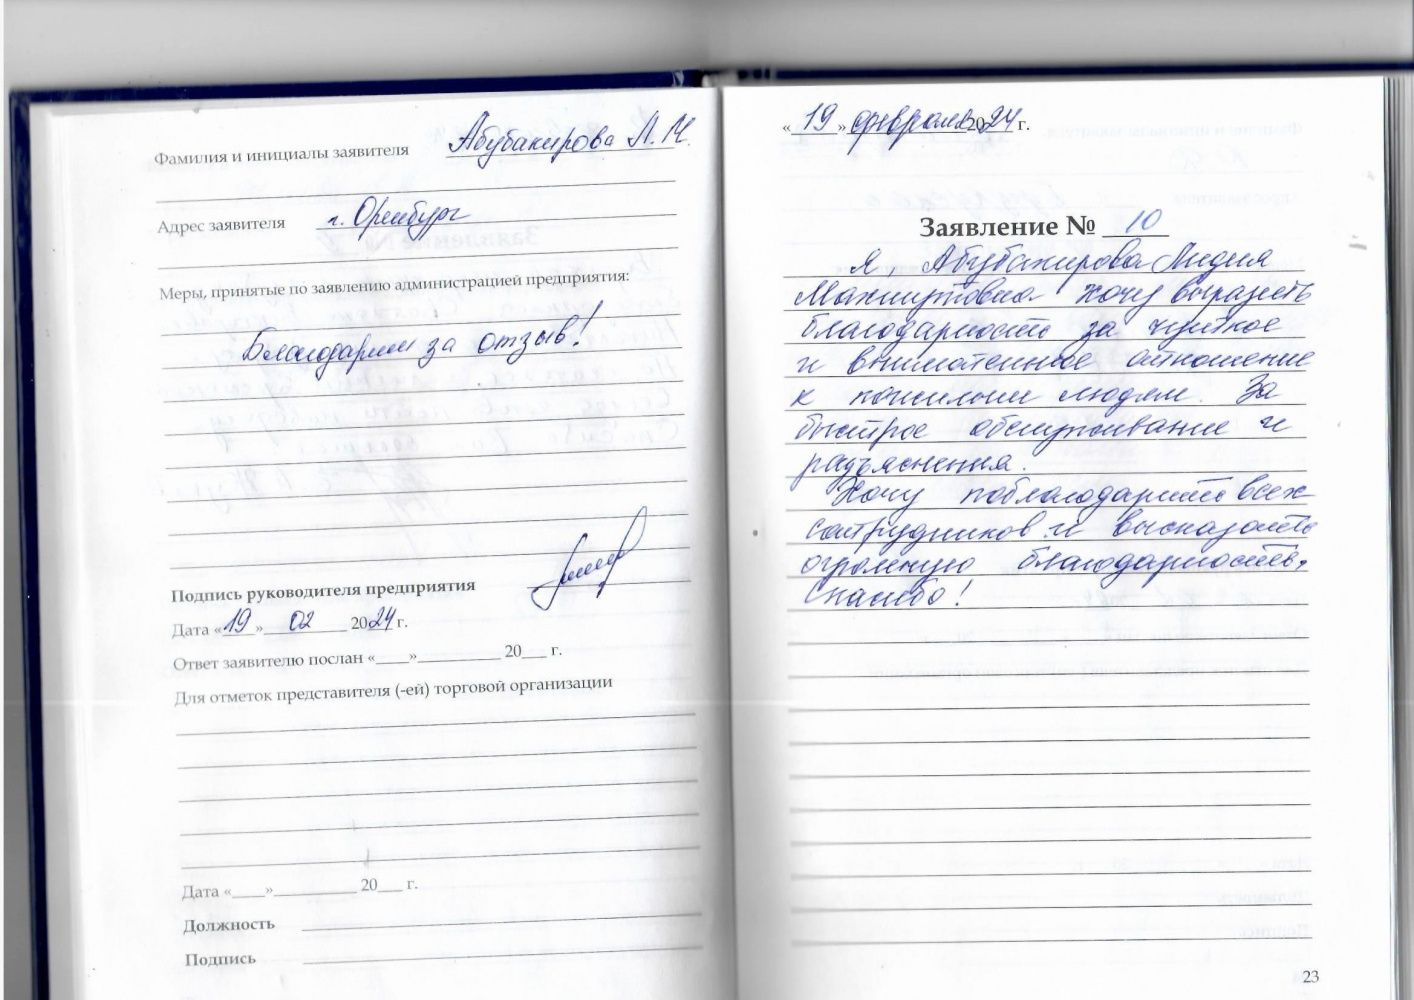 Фамилия и инициалы заявителя Абубакирова Л.М.
Адрес заявителя г. Оренбург
Меры, принятые по заявлению администрацией предприятия:
Благодарим за отзыв!
Подпись руководителя предприятия
Дата «19» 02 2024 г.
Ответ заявителю послан «____»__________ 20___ г.
Для отметок представителя (-ей) торговой организации
Дата «____»__________ 20___ г.
Должность
Подпись
«19» февраля 2024 г.
Заявление № 10
Я, Абубакирова Лидия
Махмутовна хочу выразить
благодарность за чуткое
и внимательное отношение
к пожилым людям. За
быстрое обслуживание и
разъяснения.
Хочу поблагодарить всех
сотрудников и высказать
огромную благодарность,
спасибо!
23